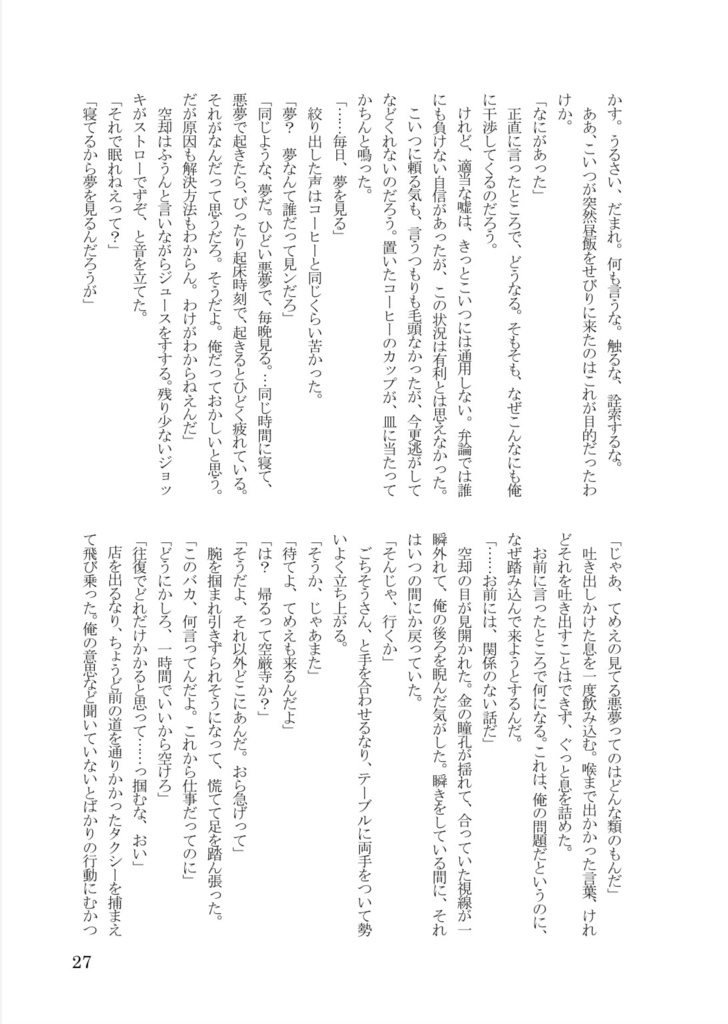 かす。うるさい、だまれ。何も言うな。触るな、詮索するな。
　ああ、こいつが突然昼飯をせびりに来たのはこれが目的だったわ
けか。
「なにがあった」
　正直に言ったところで、どうなる。そもそも、なぜこんなにも俺
に干渉してくるのだろう。
　けれど、適当な嘘は、きっとこいつには通用しない。弁論では誰
にも負けない自信があったが、この状況は有利とは思えなかった。
　こいつに頼る気も、言うつもりも毛頭なかったが、今更逃がして
などくれないのだろう。置いたコーヒーのカップが、皿に当たって
かちんと鳴った。
「……毎日、夢を見る」
　絞り出した声はコーヒーと同じくらい苦かった。
「夢？　夢なんて誰だって見ンだろ」
「同じような、夢だ。ひどい悪夢で、毎晩見る。…同じ時間に寝て、
悪夢で起きたら、ぴったり起床時刻で、起きるとひどく疲れている。
それがなんだって思うだろ。そうだよ。俺だっておかしいと思う。
だが原因も解決方法もわからん。わけがわからねえんだ」
　空却はふうんと言いながらジュースをすする。残り少ないジョッ
キがストローでずぞ、と音を立てた。
「それで眠れねえって？」
「寝てるから夢を見るんだろうが」
「じゃあ、てめえの見てる悪夢ってのはどんな類のもんだ」
　吐き出しかけた息を一度飲み込む。喉まで出かかった言葉、けれ
どそれを吐き出すことはできず、ぐっと息を詰めた。
　お前に言ったところで何になる。これは、俺の問題だというのに、
なぜ踏み込んで来ようとするんだ。
「……お前には、関係のない話だ」
　空却の目が見開かれた。金の瞳孔が揺れて、合っていた視線が一
瞬外れて、俺の後ろを睨んだ気がした。瞬きをしている間に、それ
はいつの間にか戻っていた。
「そんじゃ、行くか」
　ごちそうさん、と手を合わせるなり、テーブルに両手をついて勢
いよく立ち上がる。
「そうか、じゃあまた」
「待てよ、てめえも来るんだよ」
「は？　帰るって空厳寺か？」
「そうだよ、それ以外どこにあんだ。おら急げって」
　腕を掴まれ引きずられそうになって、慌てて足を踏ん張った。
「このバカ、何言ってんだよ。これから仕事だってのに」
「どうにかしろ、一時間でいいから空けろ」
「往復でどれだけかかると思って……っ掴むな、おい」
　店を出るなり、ちょうど前の道を通りかかったタクシーを捕まえ
て飛び乗った。俺の意思など聞いていないとばかりの行動にむかつ
27